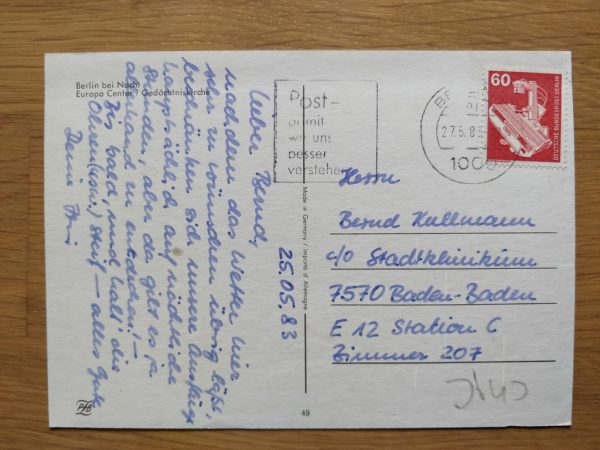 Berlin bei Nacht
Europa Center / Gedächtniskirche
Lieber Bernd,
nachdem das Wetter hier
sehr zu wünschen übrig läßt,
beschränken sich unsere Ausflüge
hauptsächlich auf nächtliche
Stunden, aber da gibt es ja
allerhand zu entdecken! –
Bis bald, und halt' die
Ohren steif – alles Gute
Deine
25.05.83
Post-
damit
wir uns
besser
verstehen
27.5.83
1000
60
DEUTSCHE BUNDESPOST BERLIN
Herrn
Bernd Kullmann
c/o Stadtklinikum
7570 Baden-Baden
E 12 Station C
Zimmer 207
Made in Germany / Importé d'Allemagne
49